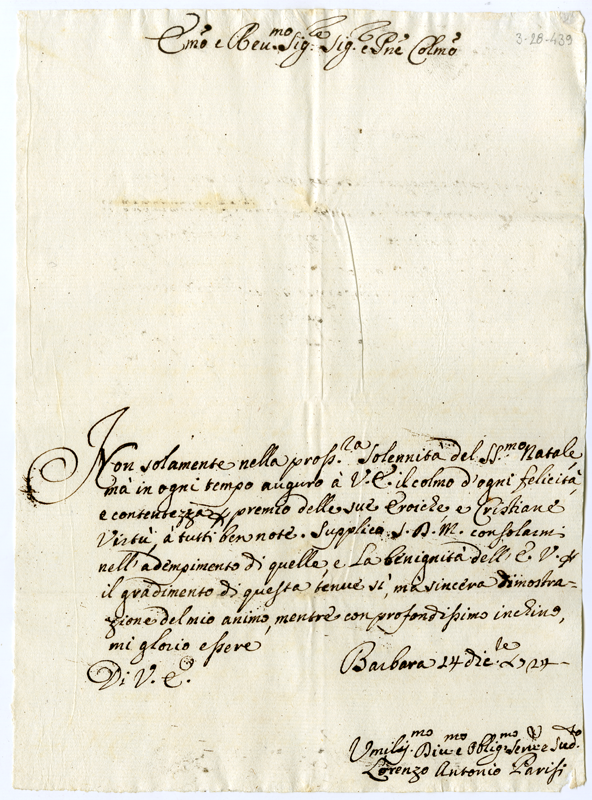 3-28-439
Emõ e Reu.mo Sig.re Sig. e Pñe Colmõ
Non solamente nella pross.ma Solennità del SS.mo Natale,
mà in ogni tempo auguro à V. E. il colmo d'ogni felicità,
e contentezza p premio delle sue Eroiche e Cristiane
Virtù, à tutti ben note. Supplico S. D. M. consolarmi
nell'adempimento di quelle, e La benignità dell'E. V. p
il gradimento di questa tenue sì, mà sincera dimostra-
zione del mio animo, mentre con profondissimo inchino,
mi glorio essere
Di V. E.
Barbara 14 dic.re
Umiliss.mo Diu.mo e Oblig.mo Seru.e e Sud.to
Lorenzo Antonio Parisi